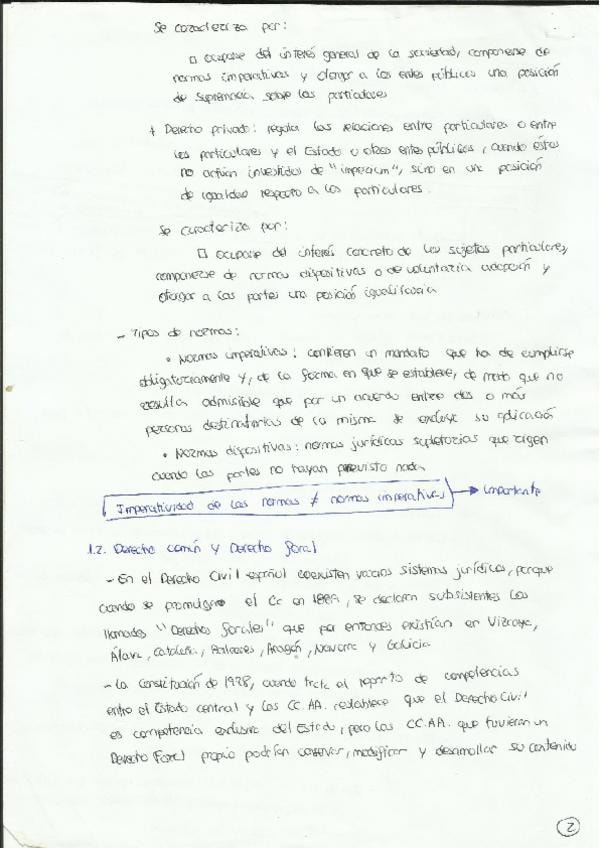 Se caracteriza por:
□ ocuparse del interés general de la sociedad, componerse de
normas imperativas y otorgar a los entes públicos una posición
de supremacía sobre los particulares
+ Derecho privado: regula las relaciones entre particulares o entre
los particulares y el Estado u otros entes públicos, cuando éstos
no actúan investidos de "imperium", sino en una posición
de igualdad respecto a los particulares.
Se caracteriza por:
□ ocuparse del interés concreto de los sujetos particulares,
componerse de normas dispositivas o de voluntaria adopción y
otorgar a las partes una posición igualitaria
- Tipos de normas:
• Normas imperativas: contienen un mandato que ha de cumplirse
obligatoriamente y, de la forma en que se establece, de modo que no
resulta admisible que por un acuerdo entre dos o más
personas destinatarias de la misma se excluya su aplicación
• Normas dispositivas: normas jurídicas supletorias que rigen
cuando las partes no hayan previsto nada
Imperatividad de las normas ≠ normas imperativas → importante
1.2. Derecho común y Derecho foral
- En el Derecho Civil español coexisten varios sistemas jurídicos, porque
cuando se promulga el Cc en 1889, se declaran subsistentes los
llamados "Derechos forales" que por entonces existían en Vizcaya,
Álava, Cataluña, Baleares, Aragón, Navarra y Galicia
- La Constitución de 1978, cuando trata el reparto de competencias
entre el Estado central y las CC.AA. establece que el Derecho Civil
es competencia exclusiva del Estado, pero las CC.AA. que tuvieran un
Derecho Foral propio podrían conservar, modificar y desarrollar su contenido
2